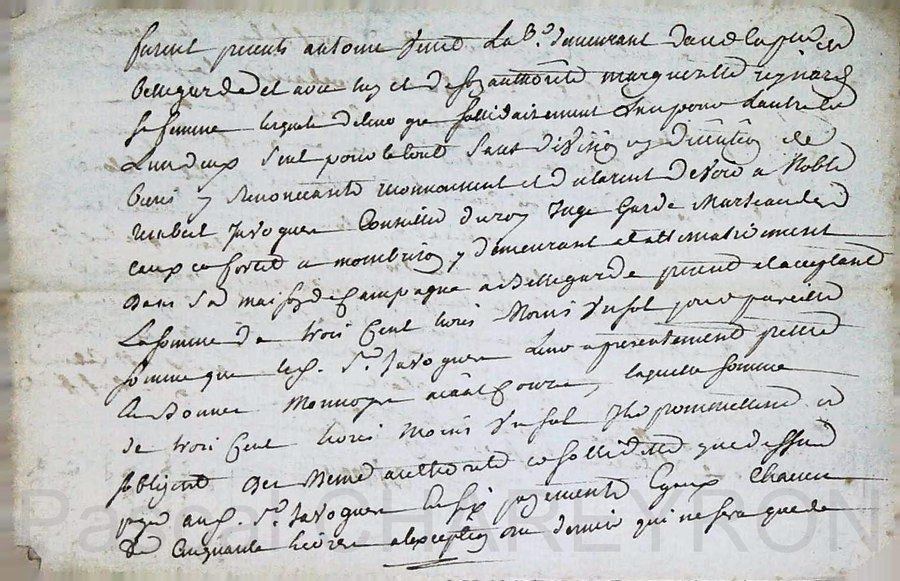 furent presents antoine lab.r demeurant dans la
Bellegarde et avec luy et de son authorité margueritte reynard
sa femme lesquels de leur gre sollidairement l'un pour l'autre
l'un deux seul pour le tout sans division ny discution de
biens y renonceants reconnoissent et declarent devoir a Noble
Javogue Conseiller du roy Juge Garde Marteau des
eaux et forets a montbrison y demeurant et
dans sa maison de Campagne a Bellegarde present et acceptant
La somme de trois Cent livres Moins un sol pour pareille
somme que led. Sr. Javogue leur a presentement
Monnoye aiant Cours, laquelle somme
de trois Cent livres Moins un sol Ils promettent et
s'obligent de Meme authorité et sollidité que dessus
payer aud. Sr. Javogue en six payements Egaux Chacun
de Cinquante livres a l'exception du dernier qui ne sera que de
Pascal CHAREYRON